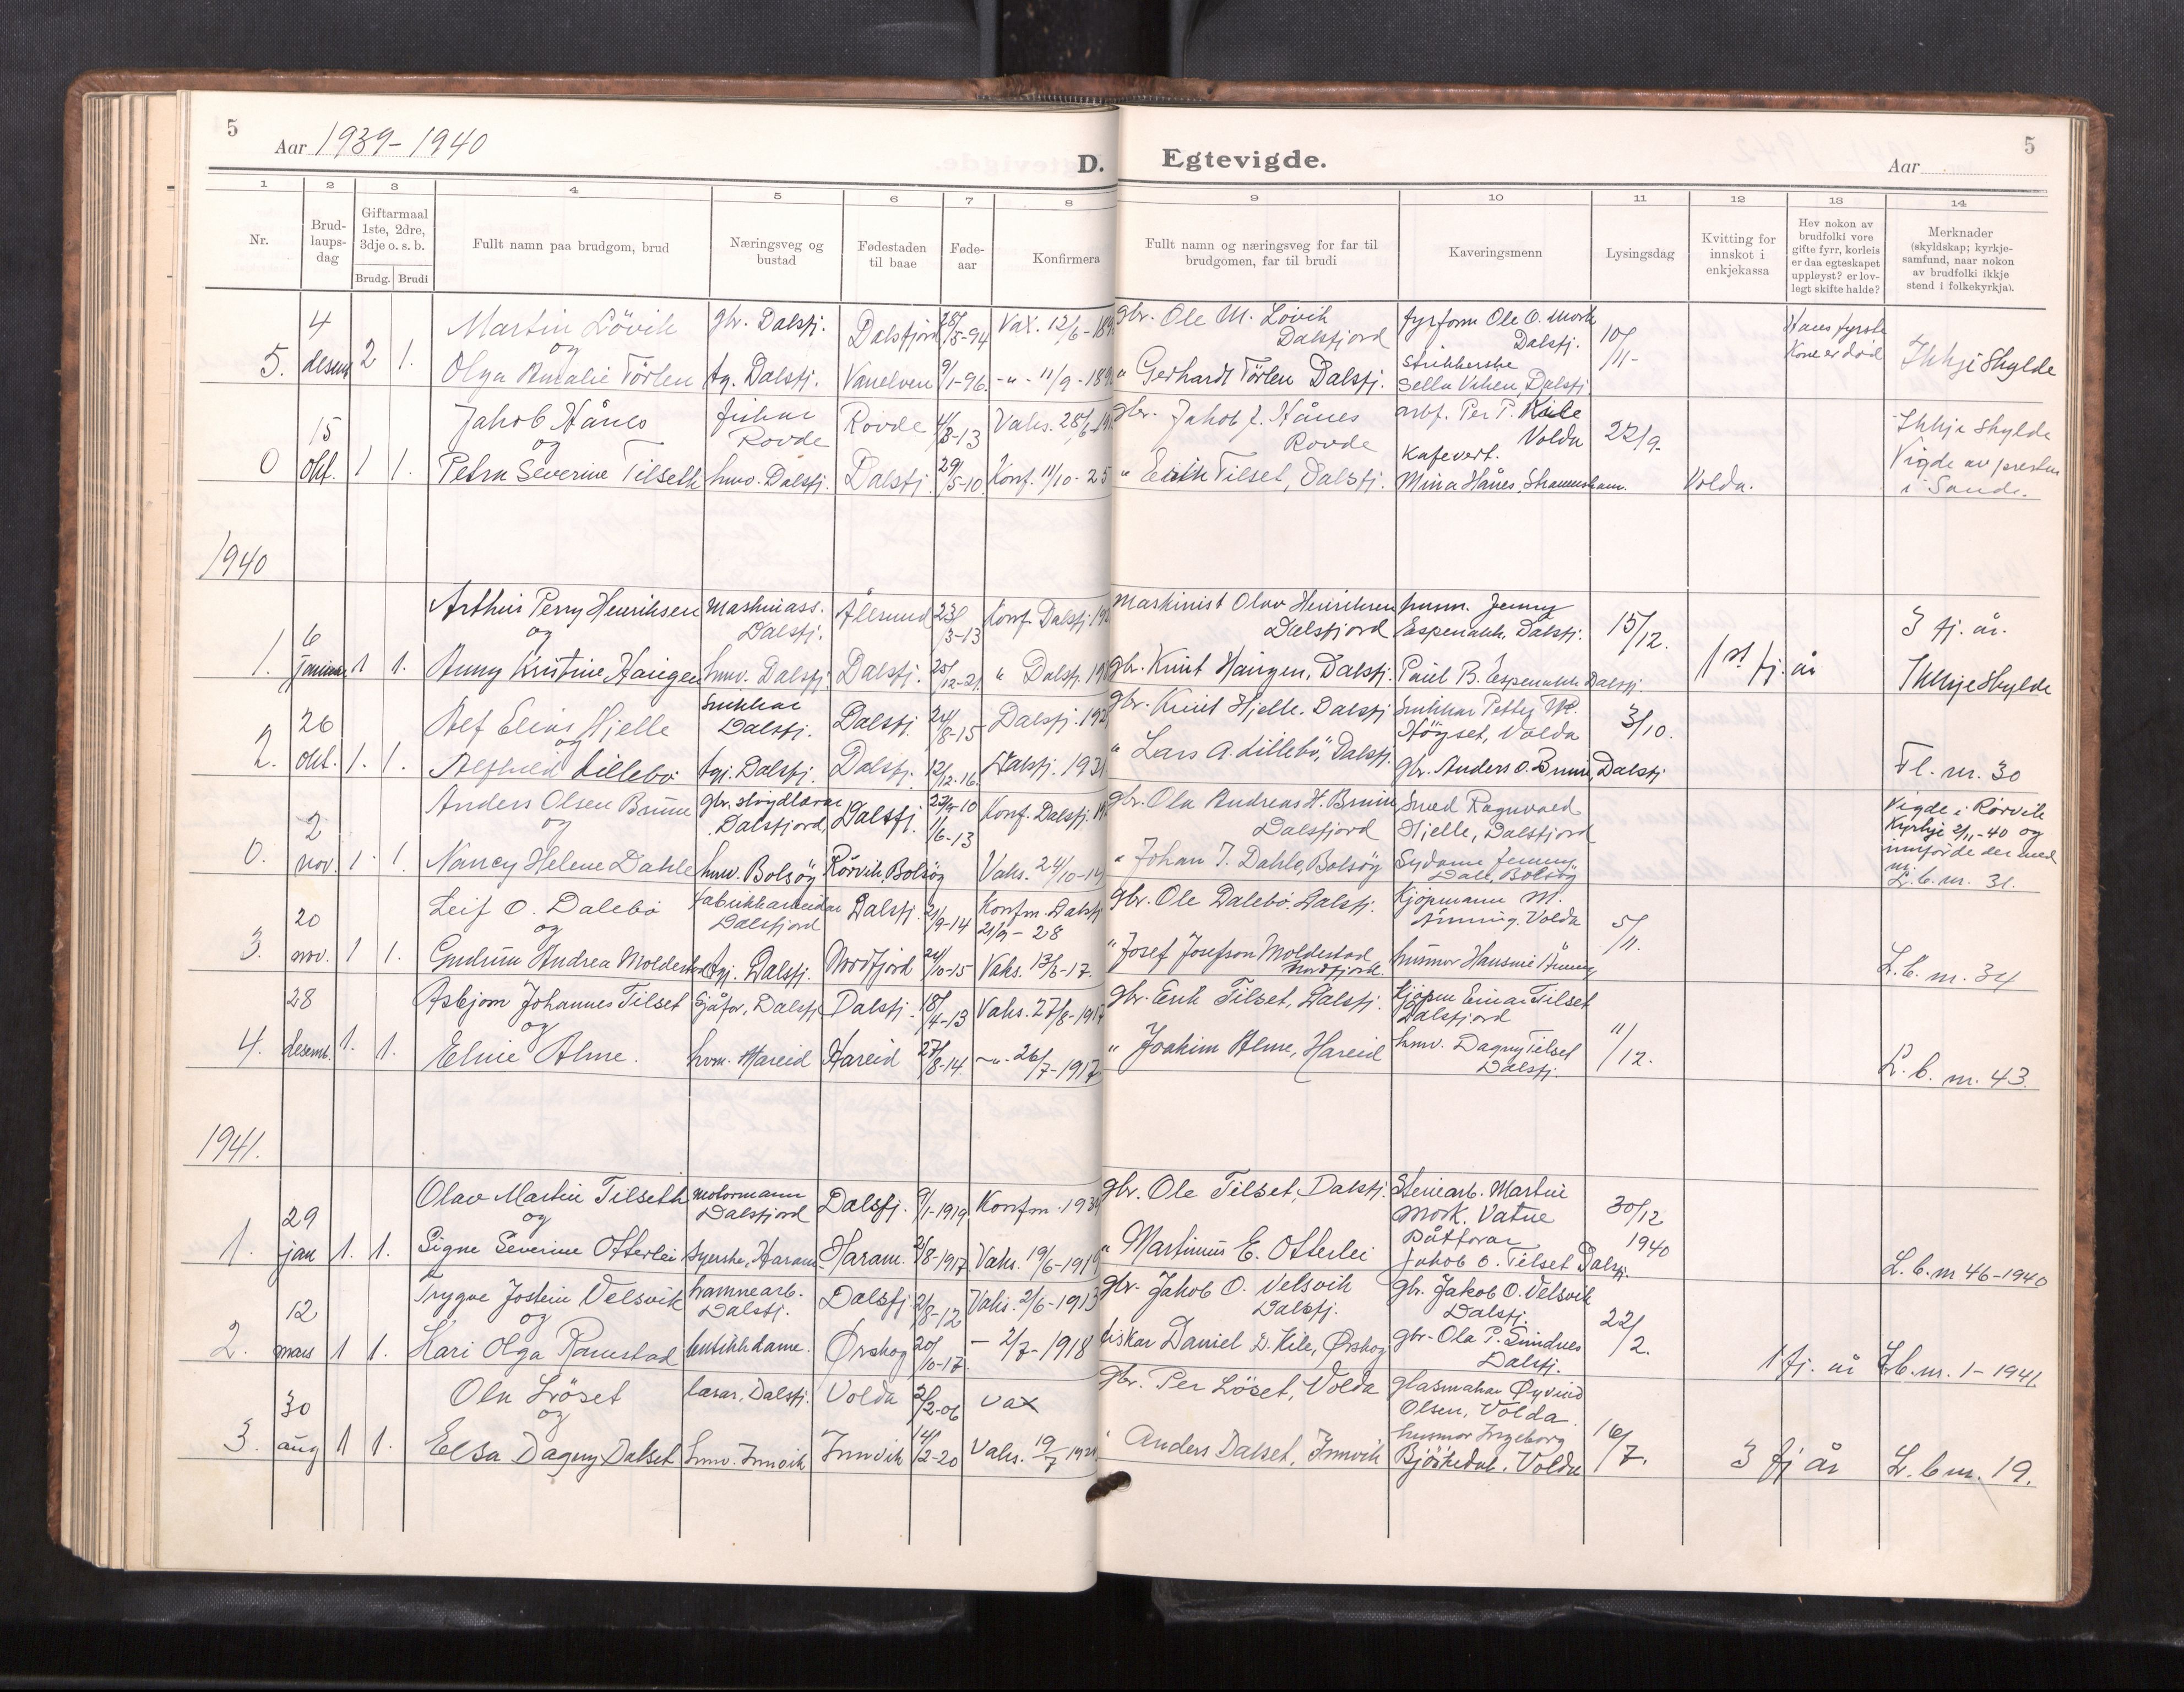 5
Aar 1939-1940
D. Egtevigde.
Aar
5
1 2 3 4 5 6 7 8 9 10 11 12 13 14
Nr.
Brud-
laups-
dag
Giftarmaal
1ste, 2dre,
3dje o. s. b.
Brudg. Brudi
Fullt namn paa brudgom, brud
Næringsveg og
bustad
Fødestaden
til baae
Føde-
aar
Konfirmera
Fullt namn og næringsveg for far til
brudgomen, far til brudi
Kaveringsmenn
Lysingsdag
Kvitting for
innskot i
enkjekassa
Hev nokon av
brudfolki vore
gifte fyrr, korleis
er daa egteskapet
uppløyst? er lov-
legt skifte halde?
Merknader
(skyldskap; kyrkje-
samfund, naar nokon
av brudfolki ikkje
stend i folkekyrkja).
5. 4 desem 2 1.
Martin Lövik gbr. Dalsfj. Dalsfjord 28/5-94 Vax. 12/6-189
og
Olga Amalie Törlen tg. Dalsfj. Vanelven 9/1-96. -"- 11/9-189
gbr. Ole M. Lövik
Dalsfjord
" Gerhardt Törlen Dalsfj.
fyrform Ole O. Mork
Dalsfj.
Strikkerske
Sella Viken, Dalsfj.
10/11-
Hans fyrste
Kone er död
Ikkje Skylde
0 15 okt. 1 1.
Jakob Hånes fiskar Rovde Rovde 4/8-13 Vaks. 28/6-19
og
Petra Severine Tilseth hmv. Dalsfj. Dalsfj. 29/5-10 Konf. 11/10-25
gbr. Jakob J. Hånes
Rovde
" Erik Tilset, Dalsfj.
arbf. Per P. Kile
Volda
Kafevert.
Mina Hånes,
22/9-
Volda.
Ikkje Skylde
Vigde av presten
i Sande.
1940
1. 6 januar 1 1.
Arthur Perry Henriksen Maskinass. Dalsfj. Ålesund 23/3-13 Konf. Dalsfj. 192
og
Anny Kristine Haugen hmv. Dalsfj. Dalsfj. 25/12-21 " Dalsfj. 19
Maskinist Olav Henriksen
Dalsfjord
gbr. Knut Haugen, Dalsfj.
husm. Jenny
Espenakk. Dalsfj.
Paul B. Espenakk Dalsfj.
15/12.
1 st fj. år
3 fj. år.
Ikkje Skylde
2. 26 okt. 1. 1.
Alf Elias Hjelle Snikkar Dalsfj. Dalsfj. 24/8-15 Dalsfj. 192
og
Alfhild Lillebö tgj. Dalsfj. Dalsfj. 12/12.16 Dalsfj. 1931
gbr. Knut Hjelle. Dalsfj
" Lars A. Lillebö, Dalsfj.
Snikkar Petter M.
Höyset, Volda
gbr. Anders O. Brune, Dalsfj
3/10.
Fl. nr. 30
0. 2 nov. 1. 1.
Anders Olsen Brune gbr. sløydlærar Dalsfjord, Dalsfj. 23/9-10 Konf. Dalsfj.
og
1/6-13
Nancy Helene Dahle hmv. Bolsöy Rörvik, Bolsöy Vaks. 24/10-14
gbr. Ola Andreas H. Brune
Dalsfjord
" Johan J. Dahle, Bolsöy
Smed Ragnvald
Hjelle, Dalsfjord
Sydame Jenny
Dale, Bolsöy
Vigde i Rörvik
Kyrkje 2/11-40 og
innförde der med
nr.
L.b. nr. 31.
3. 20 nov. 1 1.
Leif O. Dalebö Fabrikkarbeidar Dalsfjord Dalsfj. 21/9-14 Konfm. Dalsfj
21/9-28
og
Gudrun Andrea Moldestad tgj. Dalsfj. Nordfjord 24/10-15 Vaks. 13/6-17.
gbr. Ole Dalebö. Dalsfj.
" Josef Josefson Moldestad
Nordfjord.
Kjöpmann M.
Amning. Volda
husmor Hansine Amning
5/11.
L.b. nr. 34
4. 28 desemb. 1. 1.
Asbjørn Johannes Tilset Sjåfør, Dalsfj Dalsfj. 18/4-13 Vaks. 27/8-1917
og
Elnie Alme. hvm. Hareid Hareid 27/8-14. -"- 26/7-1917.
gbr. Erik Tilset, Dalsfj.
" Joakim Alme, Hareid
Kjöpm Einar Tilset
Dalsfjord
hmv. Dagny Tilset
Dalsfj.
11/12.
L.b. nr. 43
1941.
1. 29 jan 1. 1.
Olav Martin Tilseth motormann Dalsfjord Dalsfj. 9/1-1919. Konfm. 1934
og
Signe Severine Otterlei Syerske, Haram Haram. 2/8-1917 Vaks. 19/6-1919
gbr. Ole Tilset, Dalsfj.
" Martinus E. Otterlei
Steinarb. Martin
Mork. Vatne
Båtförar
Jakob O. Tilset Dalsfj.
30/12
1940
L.b. nr 46-1940
2. 12 mars 1 1.
Trygve Jostein Velsvik hamnearb. Dalsfj. Dalsfj 2/8-12 Vaks. 2/6-1913
og
Kari Olga Ramstad butikkdame. Ørskog 20/10-17. - 2/7-1918
gbr. Jakob O. Velsvik
Dalsfj.
fiskar Daniel D. Kile, Ørskog
gbr. Jakob O. Velsvik
Dalsfj.
gbr. Ola P. Sundnes
Dalsfj.
22/2.
1 fj. år
L.b. nr. 1-1941.
3. 30 aug 1 1.
Ola Löset lærar, Dalsfj. Volda 3/2-06 vax
og
Elsa Dagny Dalset hmv. Innvik Innvik 14/12-20 Vaks. 19/7 192
gbr. Per Löset, Volda
" Anders Dalset, Innvik
glasmakar Øyvind
Olsen, Volda.
husmor Ingeborg
Björkedal. Volda
16/7.
3 fj år
L.b nr. 19.